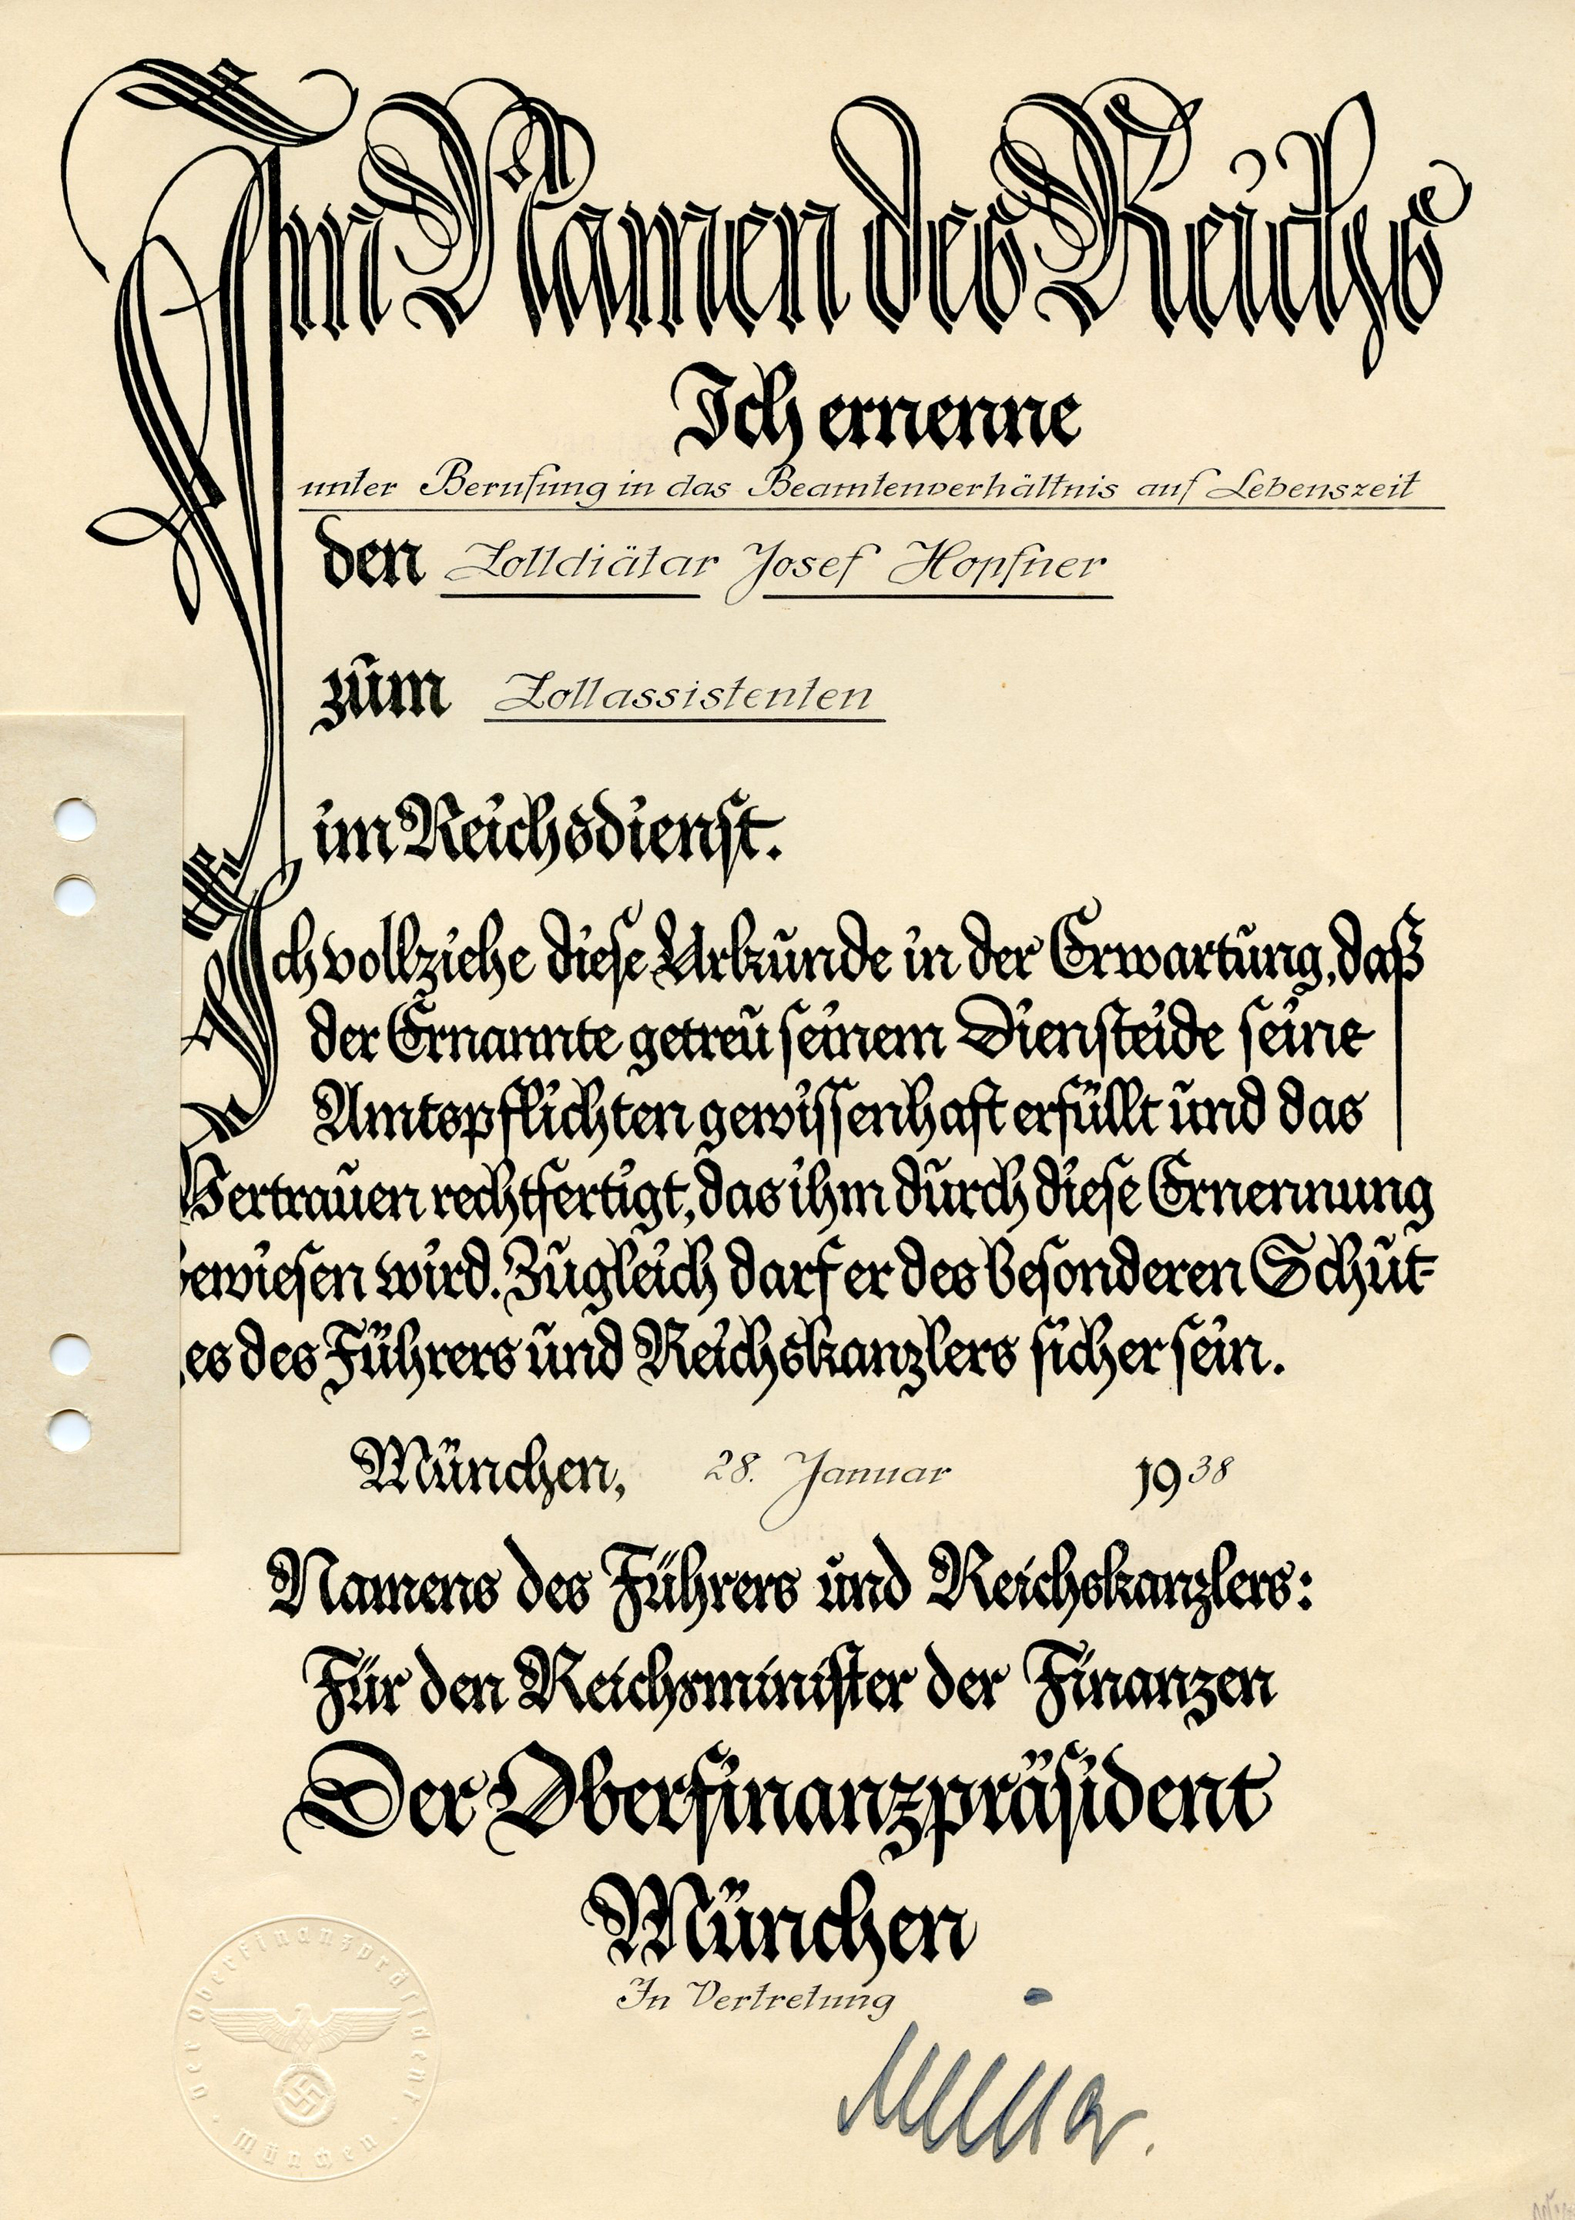 Im Namen des Reichs
Ich ernenne
unter Berufung in das Beamtenverhältnis auf Lebenszeit
den Zolldiätar Josef Hopfner
zum Zollassistenten
im Reichsdienst.
Ich vollziehe diese Urkunde in der Erwartung, daß
der Ernannte getreu seinem Diensteide seine
Amtspflichten gewissenhaft erfüllt und das
Vertrauen rechtfertigt, das ihm durch diese Ernennung
bewiesen wird. Zugleich darf er des besonderen Schut-
es des Führers und Reichskanzlers sicher sein.
München, 28. Januar 1938
Namens des Führers und Reichskanzlers:
Für den Reichsminister der Finanzen
Der Oberfinanzpräsident
München
In Vertretung
Der Oberfinanzpräsident
München